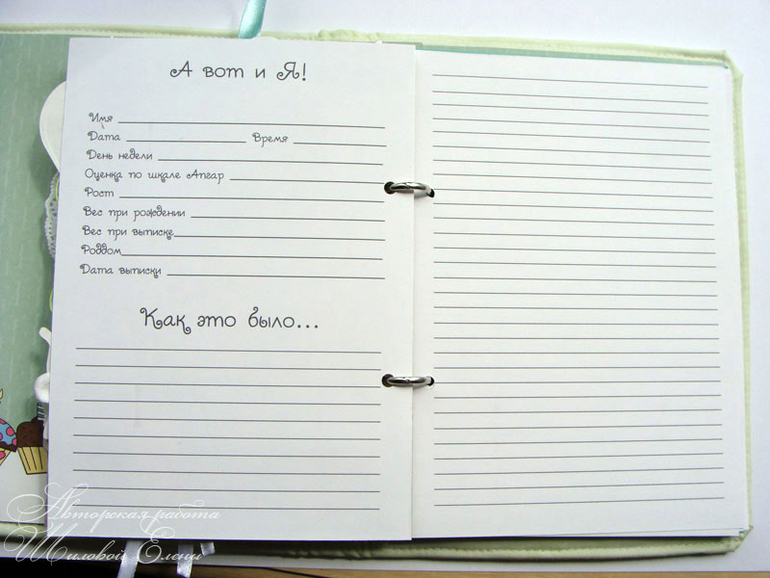 А вот и Я!
Имя
Дата Время
День недели
Оценка по шкале Апгар
Рост
Вес при рождении
Вес при выписке
Роддом
Дата выписки
Как это было...
Авторская работа
Шиловой Елены